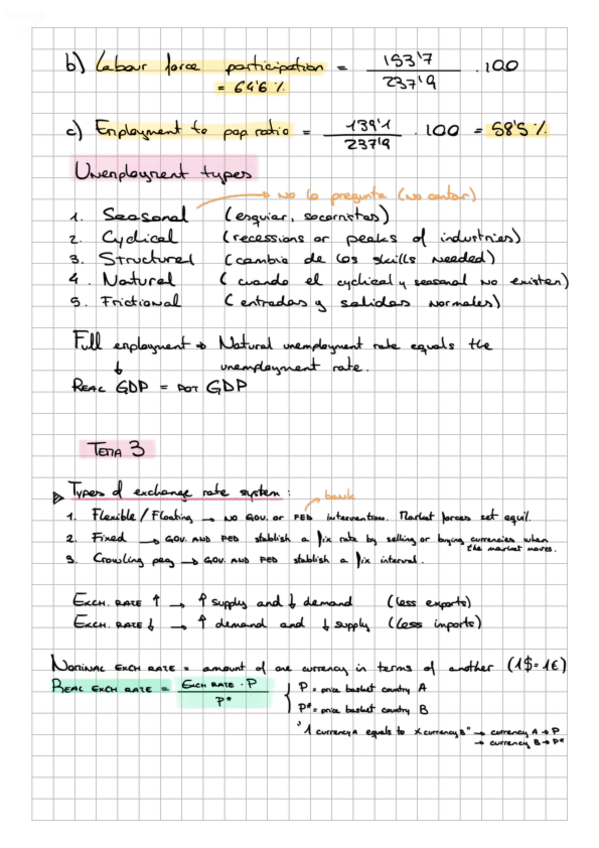 b) Labour force participation = 153'7 / 237'9 · 100
= 64'6 %
c) Employment to pop ratio = 139'1 / 237'9 · 100 = 58'5 %
Unemployment types
→ No lo pregunta (no contar)
1. Seasonal (esquiar, socorristas)
2. Cyclical (recessions or peaks of industries)
3. Structurel (cambio de los skills needed)
4. Natural (cuando el cyclical y seasonal no existen)
5. Frictional (entradas y salidas normales)
Full employment → Natural unemployment rate equals the
↓ unemployment rate.
REAL GDP = POT GDP
TEMA 3
▷ Types of exchange rate system:
→ bank
1. Flexible / Floating → NO GOV. or FED intervention. Market forces set equil.
2. Fixed → GOV. AND FED stablish a fix rate by selling or buying currencies when
the market moves.
3. Crowling peg → GOV. AND FED stablish a fix interval.
EXCH. RATE ↑ → ↑ supply and ↓ demand (less exports)
EXCH. RATE ↓ → ↑ demand and ↓ supply (less imports)
NOMINAL EXCH RATE = amount of one currency in terms of another (1$ = 1€)
REAL EXCH RATE = EXCH RATE · P / P*
P = price basket country A
P* = price basket country B
"1 currency A equals to x currency B" → currency A → P
→ currency B → P*